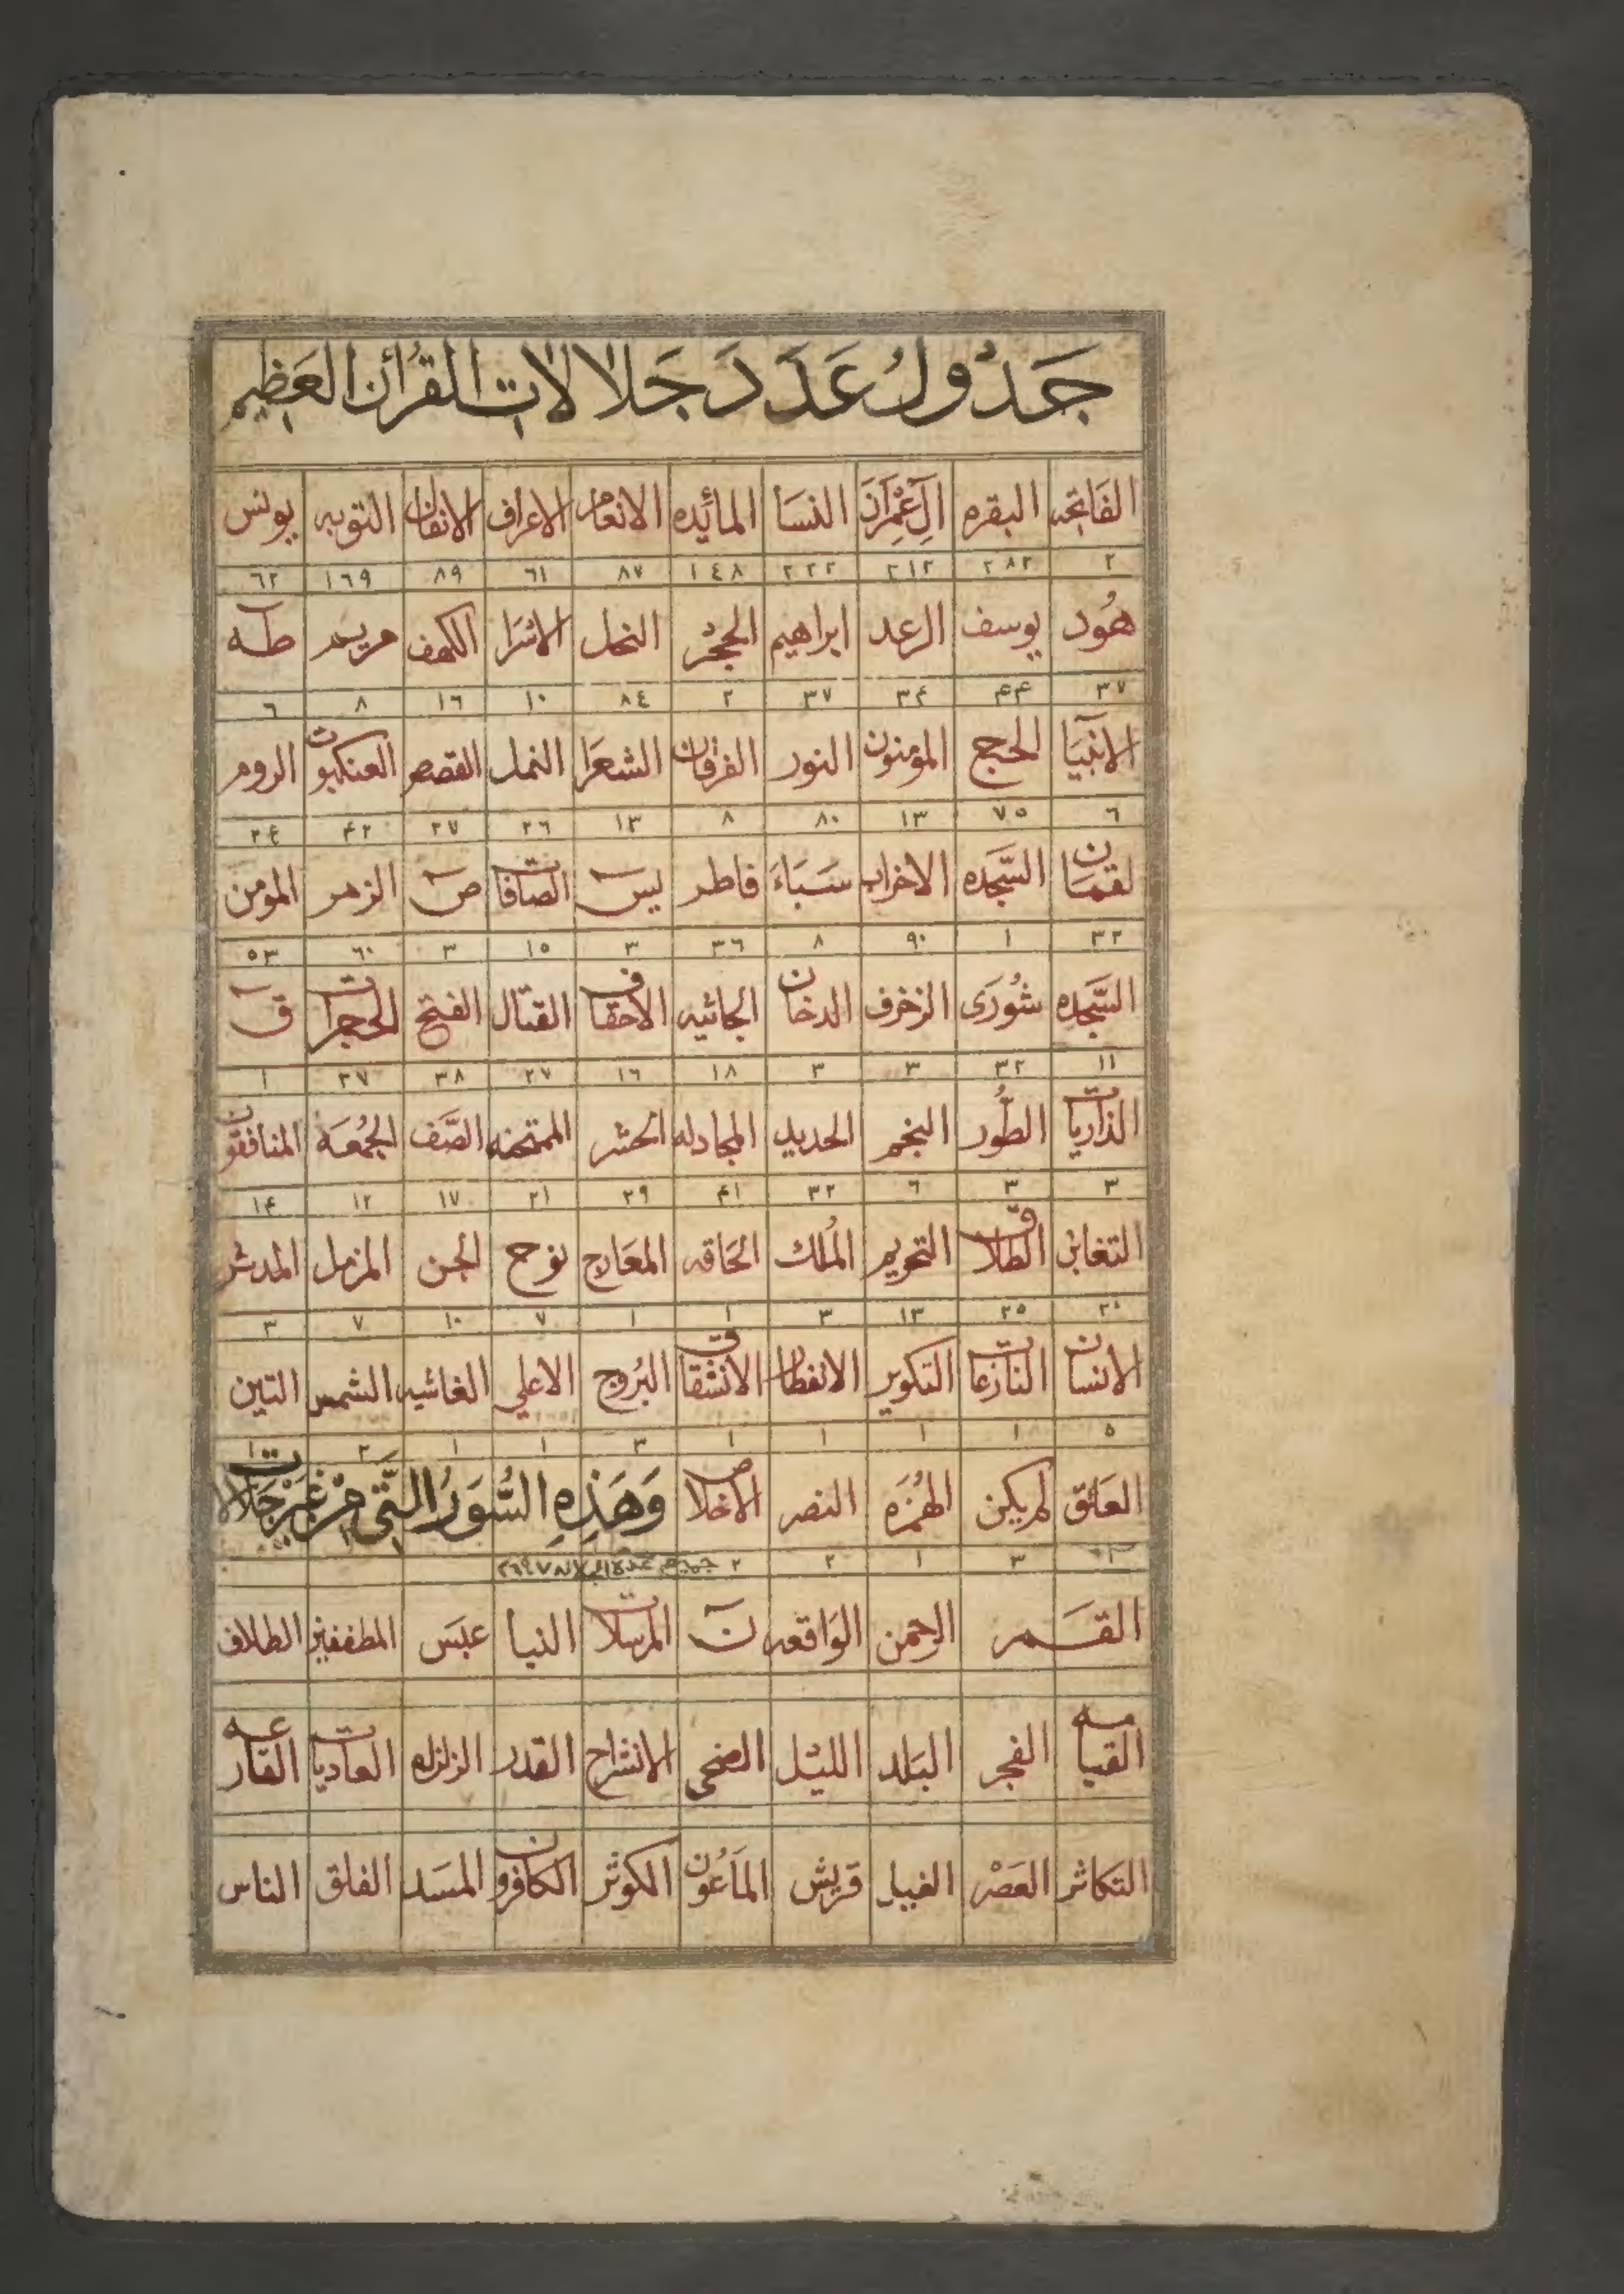 جَدْوَلُ عَدَدَ جَلَالَات القُرآن العَظِيم
الفَاتِحَه البقره آلِ عِمْرَانَ النسَا المائِده الانعام الاعراف الانفال التوبه يونس
٢ ٢٨٢ ٢١٢ ٢٢٢ ١٤٨ ٨٧ ٦١ ٨٩ ١٦٩ ٦٢
هُود يوسف الرعد ابراهيم الحِجْر النحل الاسْرَا الكهف مريم طه
٣٧ ۴۴ ٣۴ ٣٧ ٢ ٨٤ ١٠ ١٦ ٨ ٦
الانبيَا الحج المومنون النور الفرقان الشعرَا النمل القصص العنكبوت الروم
٦ ٧٥ ١٣ ٨٠ ٨ ١٣ ٢٦ ٢٧ ۴٢ ٢٤
لقمان السَّجده الاحزاب سَبَاءَ فاطر يس الصافات ص الزمر المومن
٣٢ ١ ٩٠ ٨ ٣٦ ٣ ١٥ ٣ ٦٠ ٥٣
السَّجده شُورَى الزخرف الدخان الجاثيه الاحقاف القتال الفتح الحجرات ق
١١ ٣٢ ٣ ٣ ١٨ ١٦ ٢٧ ٣٨ ٢٧ ١
الذاريات الطُّور النجم الحديد المجادله الحشر الممتحنه الصَّف الجُمُعَة المنافقون
٣ ٣ ٦ ٣٢ ۴١ ٢٩ ٢١ ١٧ ١٢ ١۴
التغابن الطلاق التحريم المُلك الحَاقه المعَارج نوح الجن المزمل المدثر
٢٠ ٢٥ ١٣ ٣ ١ ١ ٧ ١٠ ٧ ٣
الانسان النازعات التكوير الانفطار الانشقاق البُروج الاعلي الغاشيه الشمس التين
٥ ١ ١ ١ ١ ٣ ١ ١ ٢ ١
العَلق لم يكن الهُمَزه النصر الاخلاص وَهَذِهِ السُّوَرُ الَّتِي مِنْ غَيْرِ جَلَالَات
٣ ١ ٢ ٢ جميع عدة الجلاله ٢٦٩٧
القَمر الرحمن الوَاقعه ن المرسلات النبا عبَس المطففين الطلاق
القيامه الفجر البَلد الليْل الضحى الانشراح القدر الزلزله العاديات القارعه
التكاثر العَصْر الفيل قريش المَاعُون الكوثر الكافرون المسَد الفلق الناس